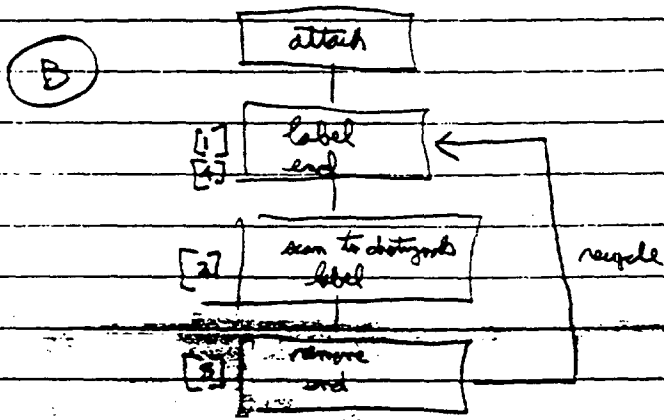 B
attach
[1] label
[4] end
[2] scan to distinguish
label
recycle
[3] remove
end